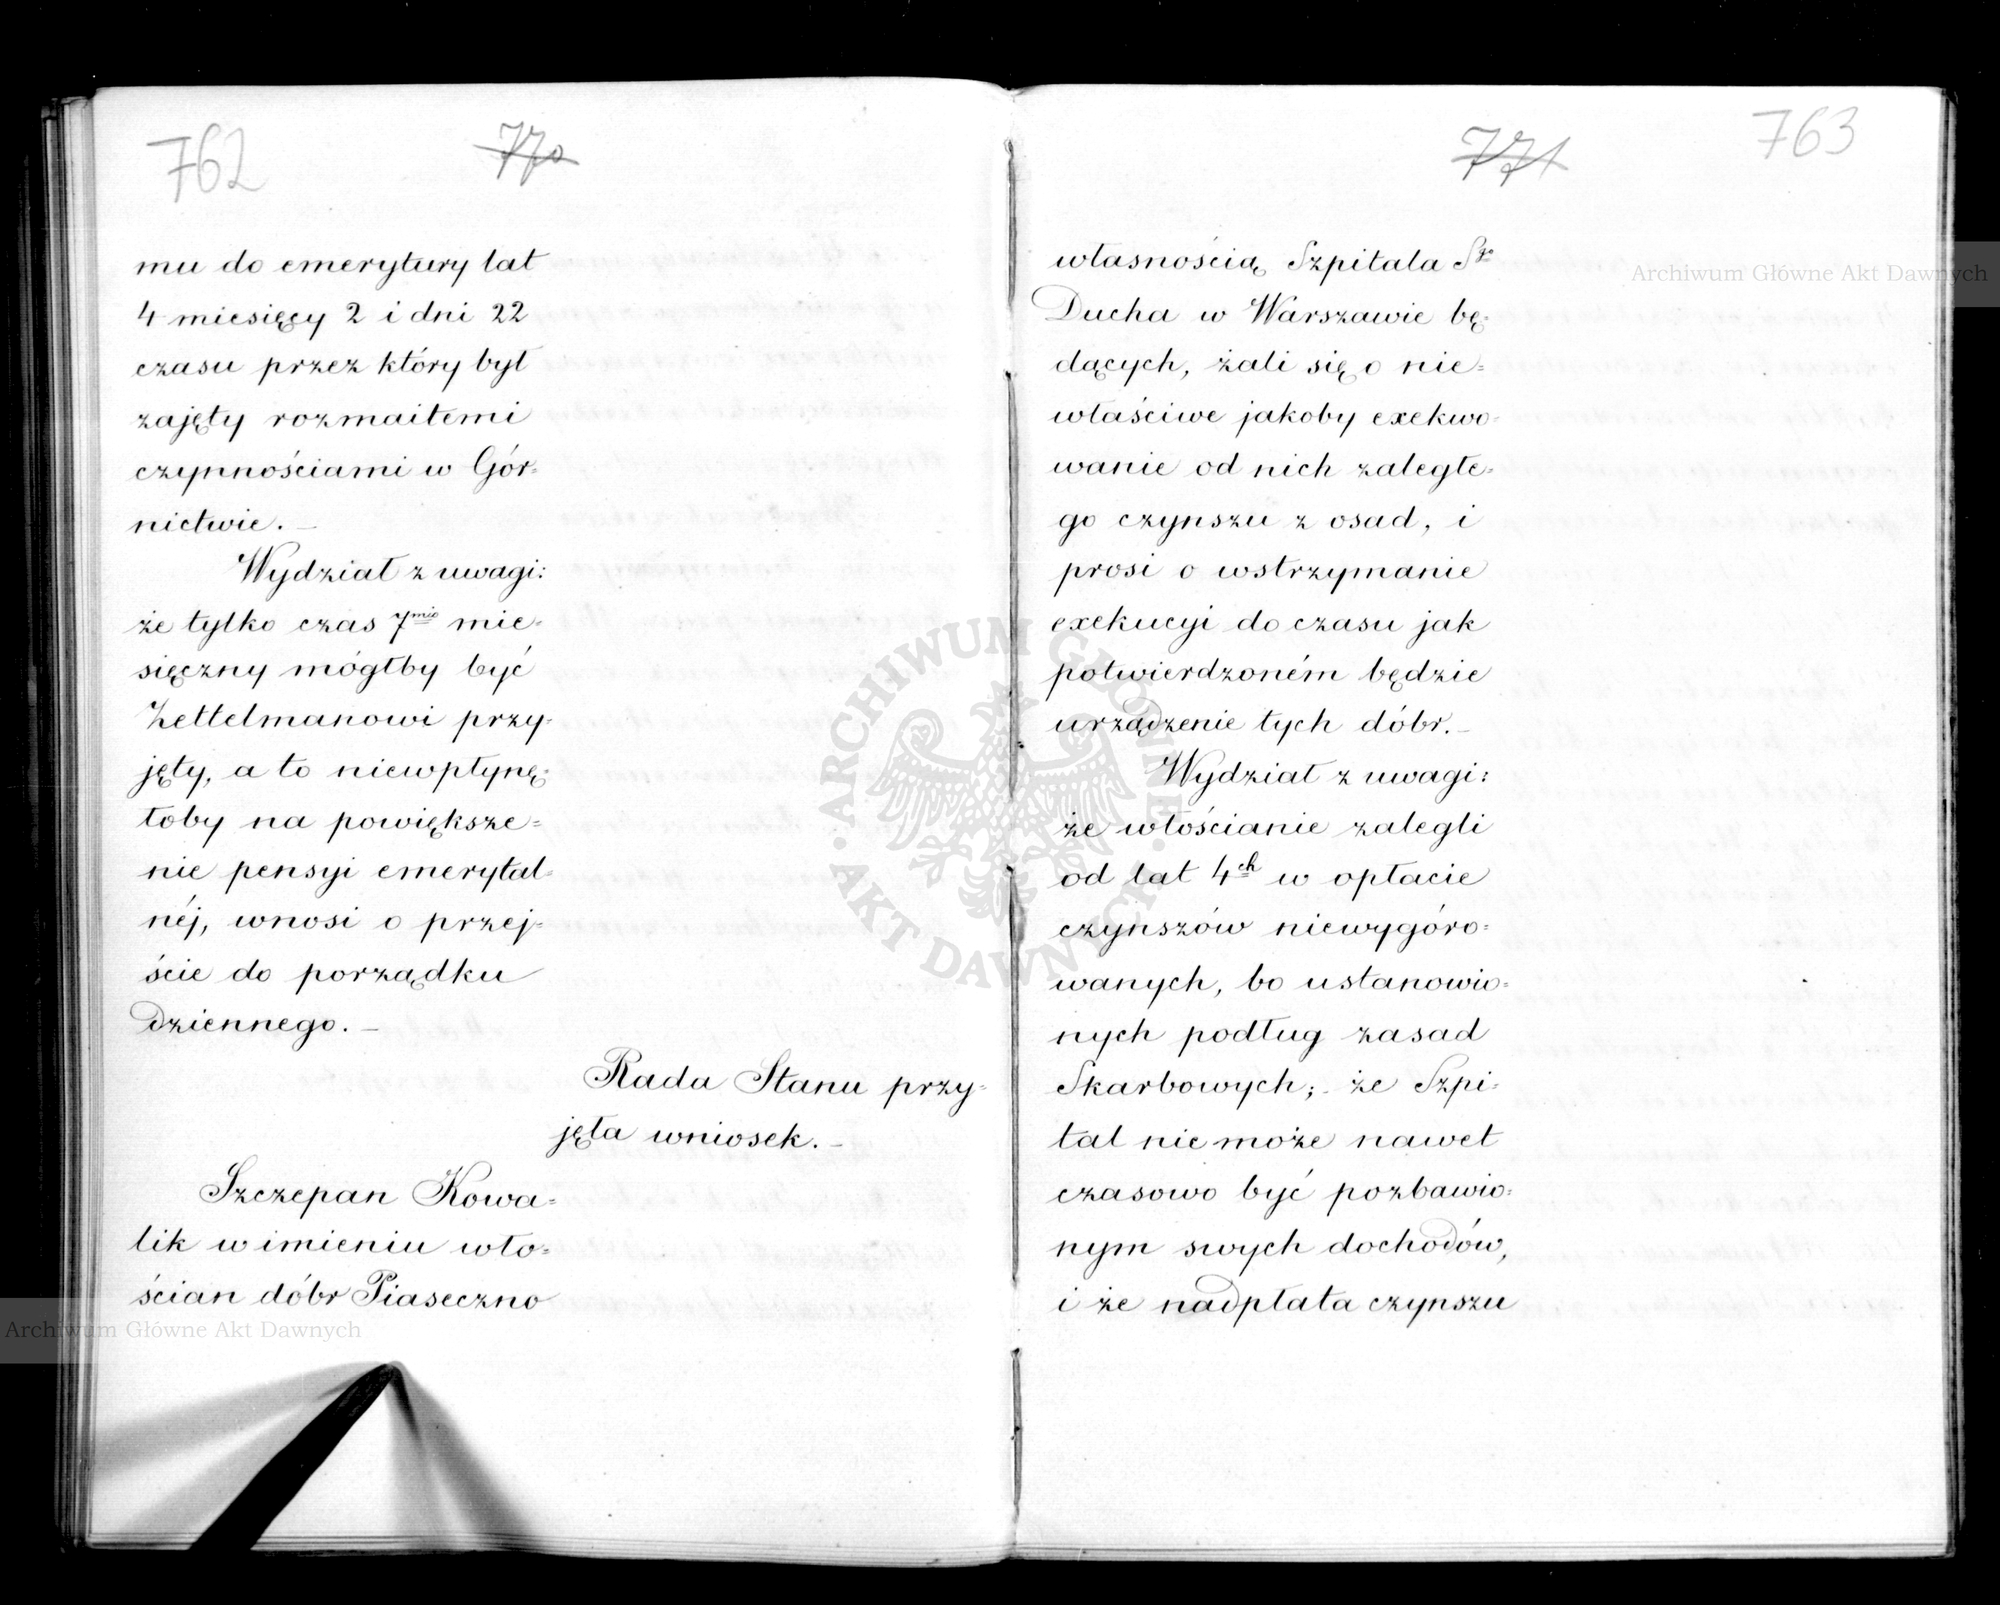 762
770
mu do emerytury lat
4 miesięcy 2 i dni 22
czasu przez który był
zajęty rozmaitemi
czynnościami w Gór-
nictwie. –
Wydział z uwagi:
że tylko czas 7mio mie-
sięczny mógłby być
Zettelmanowi przy-
jęty, a to niewpłynę-
łoby na powiększe-
nie pensyi emerytal-
néj, wnosi o przej-
ście do porządku
dziennego. –
Rada Stanu przy-
jęła wniosek. –
Szczepan Kowa-
lik w imieniu wło-
ścian dóbr Piaseczno
Archiwum Główne Akt Dawnych
771
763
własnością Szpitala Sgo
Ducha w Warszawie bę-
dących, żali się o nie-
właściwe jakoby exekwo-
wanie od nich zaległe-
go czynszu z osad, i
prosi o wstrzymanie
exekucyi do czasu jak
potwierdzoném będzie
urządzenie tych dóbr. –
Wydział z uwagi:
że włościanie zalegli
od lat 4ch w opłacie
czynszów niewygóro-
wanych, bo ustanowio-
nych podług zasad
Skarbowych; że Szpi-
tal nie może nawet
czasowo być pozbawio-
nym swych dochodów,
i że nadpłata czynszu
Archiwum Główne Akt Dawnych
ARCHIWUM GŁÓWNE · AKT DAWNYCH ·